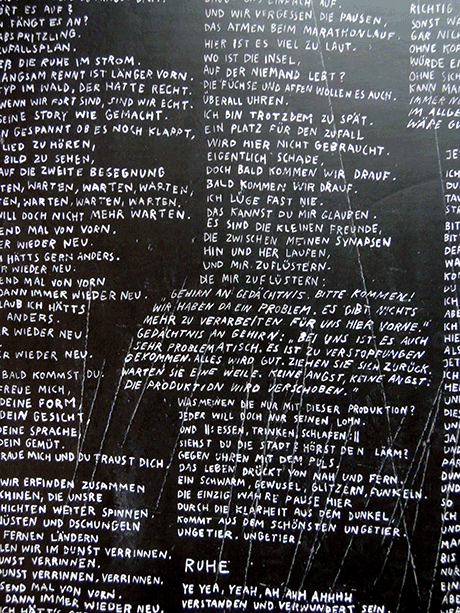 ÖRT ES AUF?
N FÄNGT ES AN?
ABSPRITZLING.
ZUFALLSPLAN.
DIE RUHE IM STROM.
LANGSAM RENNT IST LÄNGER VORN.
TYP IM WALD, DER HATTE RECHT.
WENN WIR FORT SIND, SIND WIR ECHT.
SEINE STORY WIE GEMACHT.
N GESPANNT OB ES NOCH KLAPPT,
LIED ZU HÖREN,
BILD ZU SEHEN,
AUF DIE ZWEITE BESEGNUNG
TEN, WARTEN, WARTEN, WARTEN,
TEN, WARTEN, WARTEN, WARTEN.
WILL DOCH NICHT MEHR WARTEN.
SEND MAL VON VORN.
ER WIEDER NEU.
H HÄTTS GERN ANDERS.
ER WIEDER NEU.
SEND MAL VON VORN
DANN IMMER WIEDER NEU.
LAUB ICH HÄTTS
ANDERS.
ER WIEDER NEU.
ER WIEDER NEU.
BALD KOMMST DU.
FREUE MICH,
DEINE FORM,
DEIN GESICHT
DEINE SPRACHE,
DEIN GEMÜT.
TRAUE MICH UND DU TRAUST DICH.
WIR ERFINDEN ZUSAMMEN
SCHINEN, DIE UNSRE
CHICHTEN WEITER SPINNEN.
ÜSTEN UND DSCHUNGELN
FERNEN LÄNDERN
LEN WIR IM DUNST VERRINNEN.
DUNST VERRINNEN.
DUNST VERRINNEN, VERRINNEN.
SEND MAL VON VORN.
DANN IMMER WIEDER NEU.
ICH HÄTTS
EINFACH AUF.
UND WIR VERGESSEN DIE PAUSEN,
DAS ATMEN BEIM MARATHONLAUF.
HIER IST ES VIEL ZU LAUT.
WO IST DIE INSEL,
AUF DER NIEMAND LEBT?
DIE FÜCHSE UND AFFEN WOLLEN ES AUCH.
ÜBERALL UHREN.
ICH BIN TROTZDEM ZU SPÄT.
EIN PLATZ FÜR DEN ZUFALL
WIRD HIER NICHT GEBRAUCHT.
EIGENTLICH SCHADE,
DOCH BALD KOMMEN WIR DRAUF.
BALD KOMMEN WIR DRAUF.
ICH LÜGE FAST NIE.
DAS KANNST DU MIR GLAUBEN.
ES SIND DIE KLEINEN FREUNDE,
DIE ZWISCHEN MEINEN SYNAPSEN
HIN UND HER LAUFEN,
UND MIR ZUFLÜSTERN.
DIE MIR ZUFLÜSTERN:
"GEHIRN AN GEDÄCHTNIS. BITTE KOMMEN!
WIR HABEN DA EIN PROBLEM. ES GIBT NICHTS
MEHR ZU VERARBEITEN FÜR UNS HIER VORNE."
GEDÄCHTNIS AN GEHIRN: "BEI UNS IST ES AUCH
SEHR PROBLEMATISCH. ES IST ZU VERSTOPFUNGEN
GEKOMMEN. ALLES WIRD GUT. ZIEHEN SIE SICH ZURÜCK.
WARTEN SIE EINE WEILE. KEINE ANGST, KEINE ANGST:
DIE PRODUKTION WIRD VERSCHOBEN."
WAS MEINEN DIE NUR MIT DIESER PRODUKTION?
JEDER WILL DOCH NUR SEINEN LOHN.
UND ||: ESSEN, TRINKEN, SCHLAFEN :||
SIEHST DU DIE STADT? HÖRST DEN LÄRM?
GEGEN UHREN MIT DEM PULS.
DAS LEBEN DRÜCKT VON NAH UND FERN.
EIN SCHWARM, GEWUSEL, GLITZERN, FUNKELN.
DIE EINZIG WAHRE PAUSE HIER
DURCH DIE KLARHEIT AUS DEM DUNKEL,
KOMMT AUS DEM SCHÖNSTEN UNGETIER.
UNGETIER. UNGETIER.
RUHE
YE YEA, YEAH, AH, AHH AHHHH
VERSTANDEN UND VERWUNDERT SEIN.
RICHTIG
SONST WA
GAR NIC
OHNE KOP
WÜRDE EI
OHNE SIC
KANN MA
IMMER N
IM ALLGE
WÄRE GU